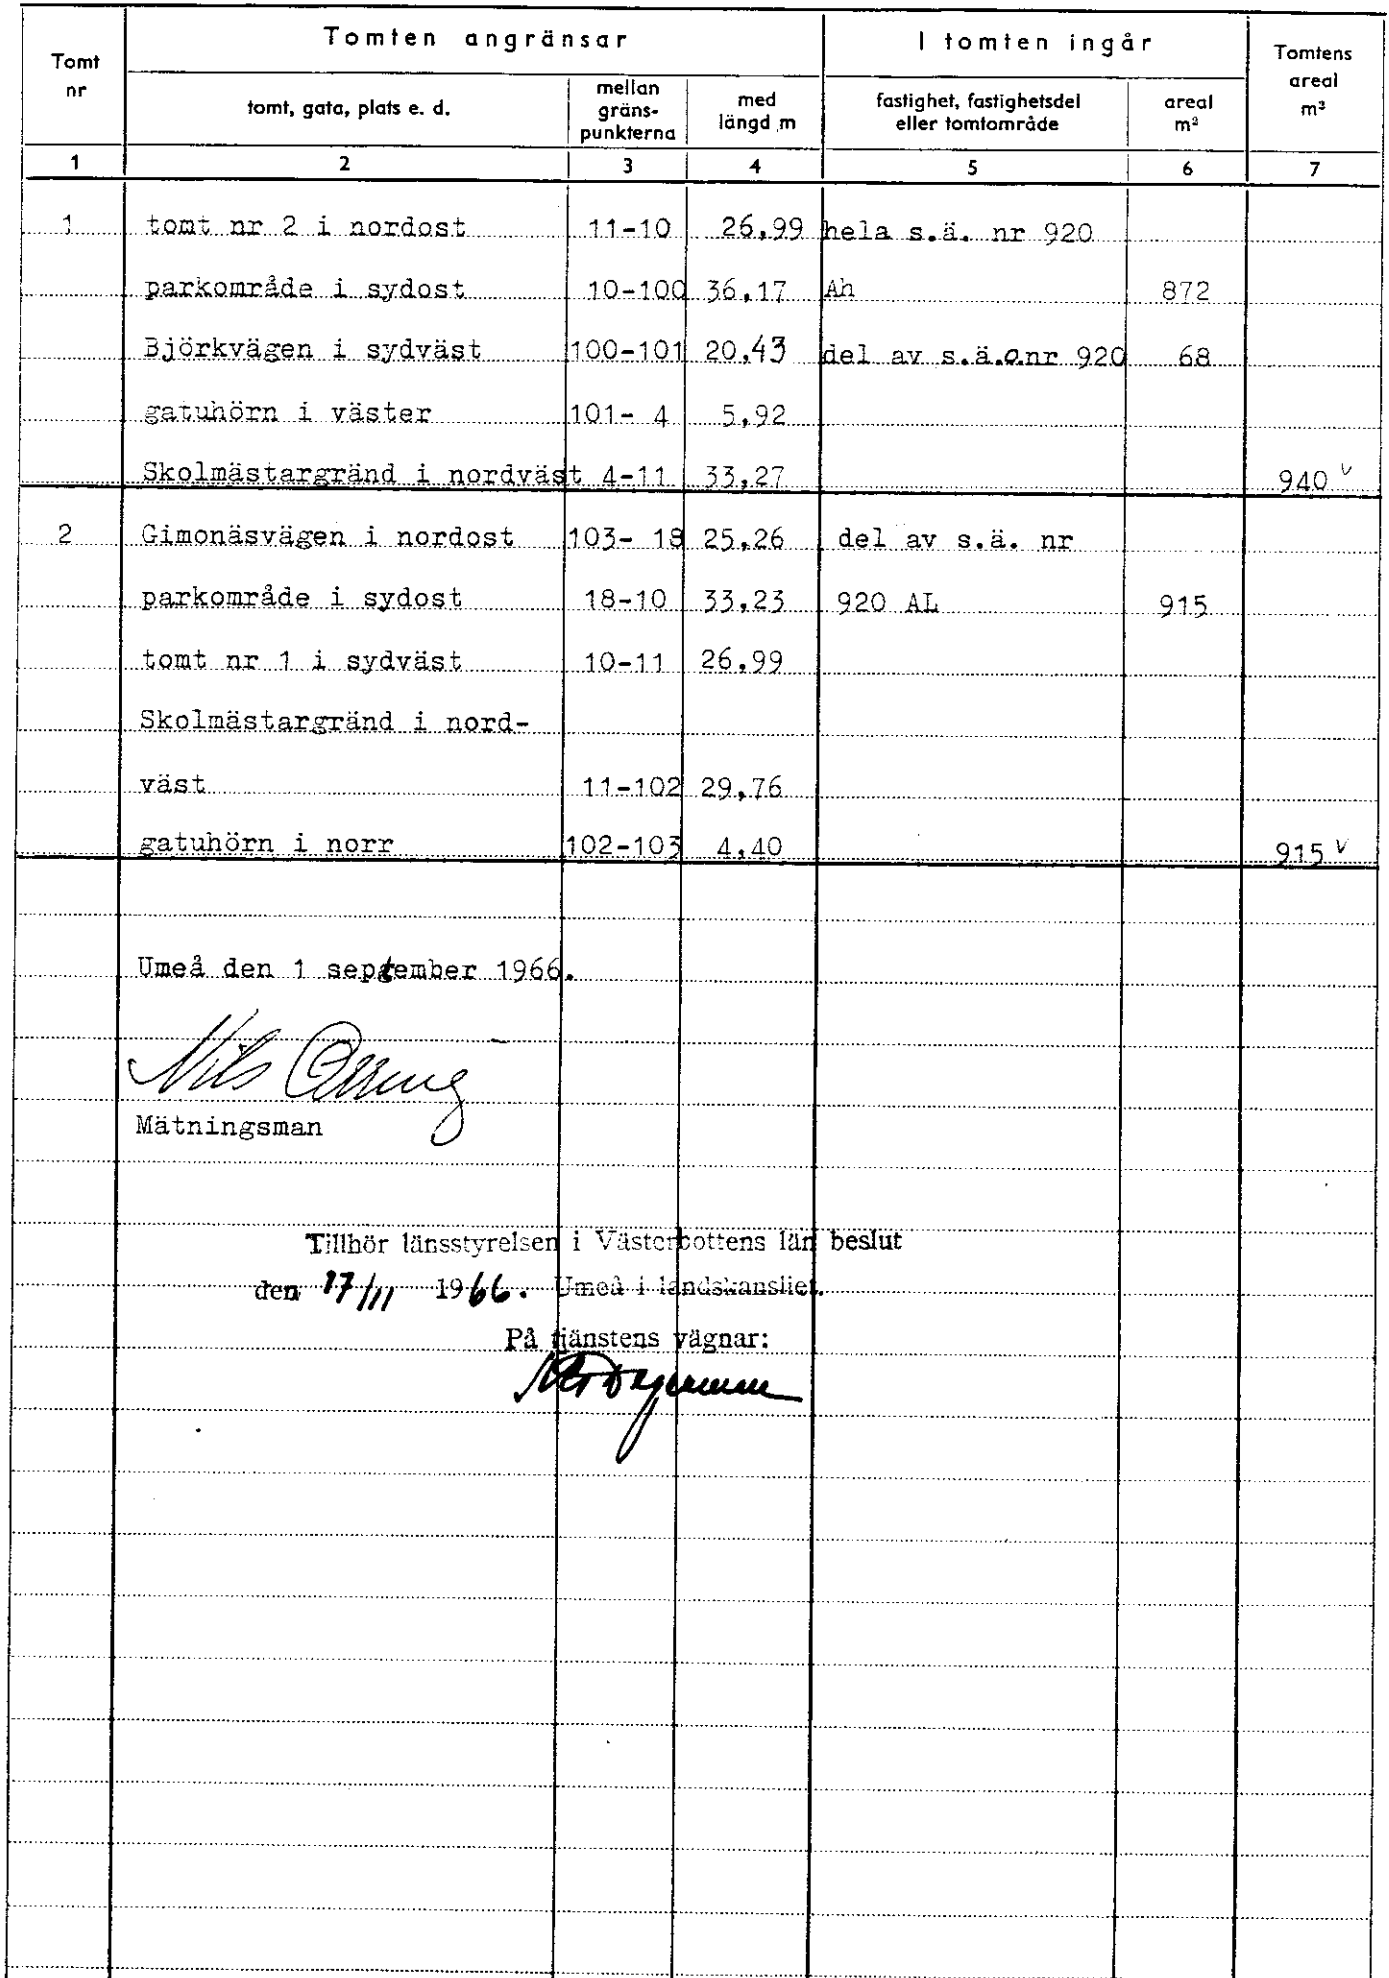 Tomt nr Tomten angränsar I tomten ingår Tomtens areal m²
tomt, gata, plats e. d. mellan gräns-punkterna med längd m fastighet, fastighetsdel eller tomtområde areal m²
1 2 3 4 5 6 7
1 tomt nr 2 i nordost 11-10 26,99 hela s.ä. nr 920
parkområde i sydost 10-100 36,17 Ah 872
Björkvägen i sydväst 100-101 20,43 del av s.ä.o.nr 920 68
gatuhörn i väster 101- 4 5,92
Skolmästargränd i nordväst 4-11 33,27 940 v
2 Gimonäsvägen i nordost 103- 18 25,26 del av s.ä. nr
parkområde i sydost 18-10 33,23 920 AL 915
tomt nr 1 i sydväst 10-11 26,99
Skolmästargränd i nord-
väst 11-102 29,76
gatuhörn i norr 102-103 4,40 915 v
Umeå den 1 september 1966.
Nils
Mätningsman
Tillhör länsstyrelsen i Västerbottens län beslut
den 17/11 1966. Umeå i landskansliet.
På tjänstens vägnar: